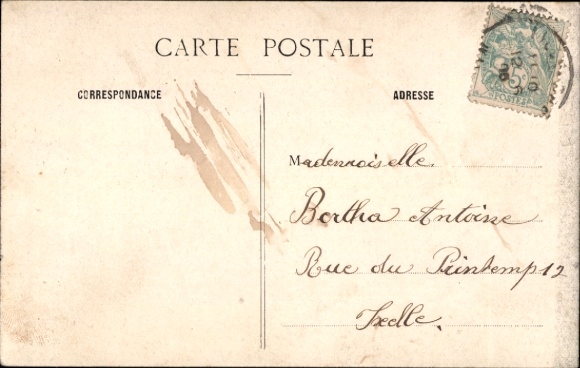 CARTE POSTALE
CORRESPONDANCE
ADRESSE
Mademoiselle.
Bertha Antoine
Rue du Printemp 12
Ixelle.
POSTES